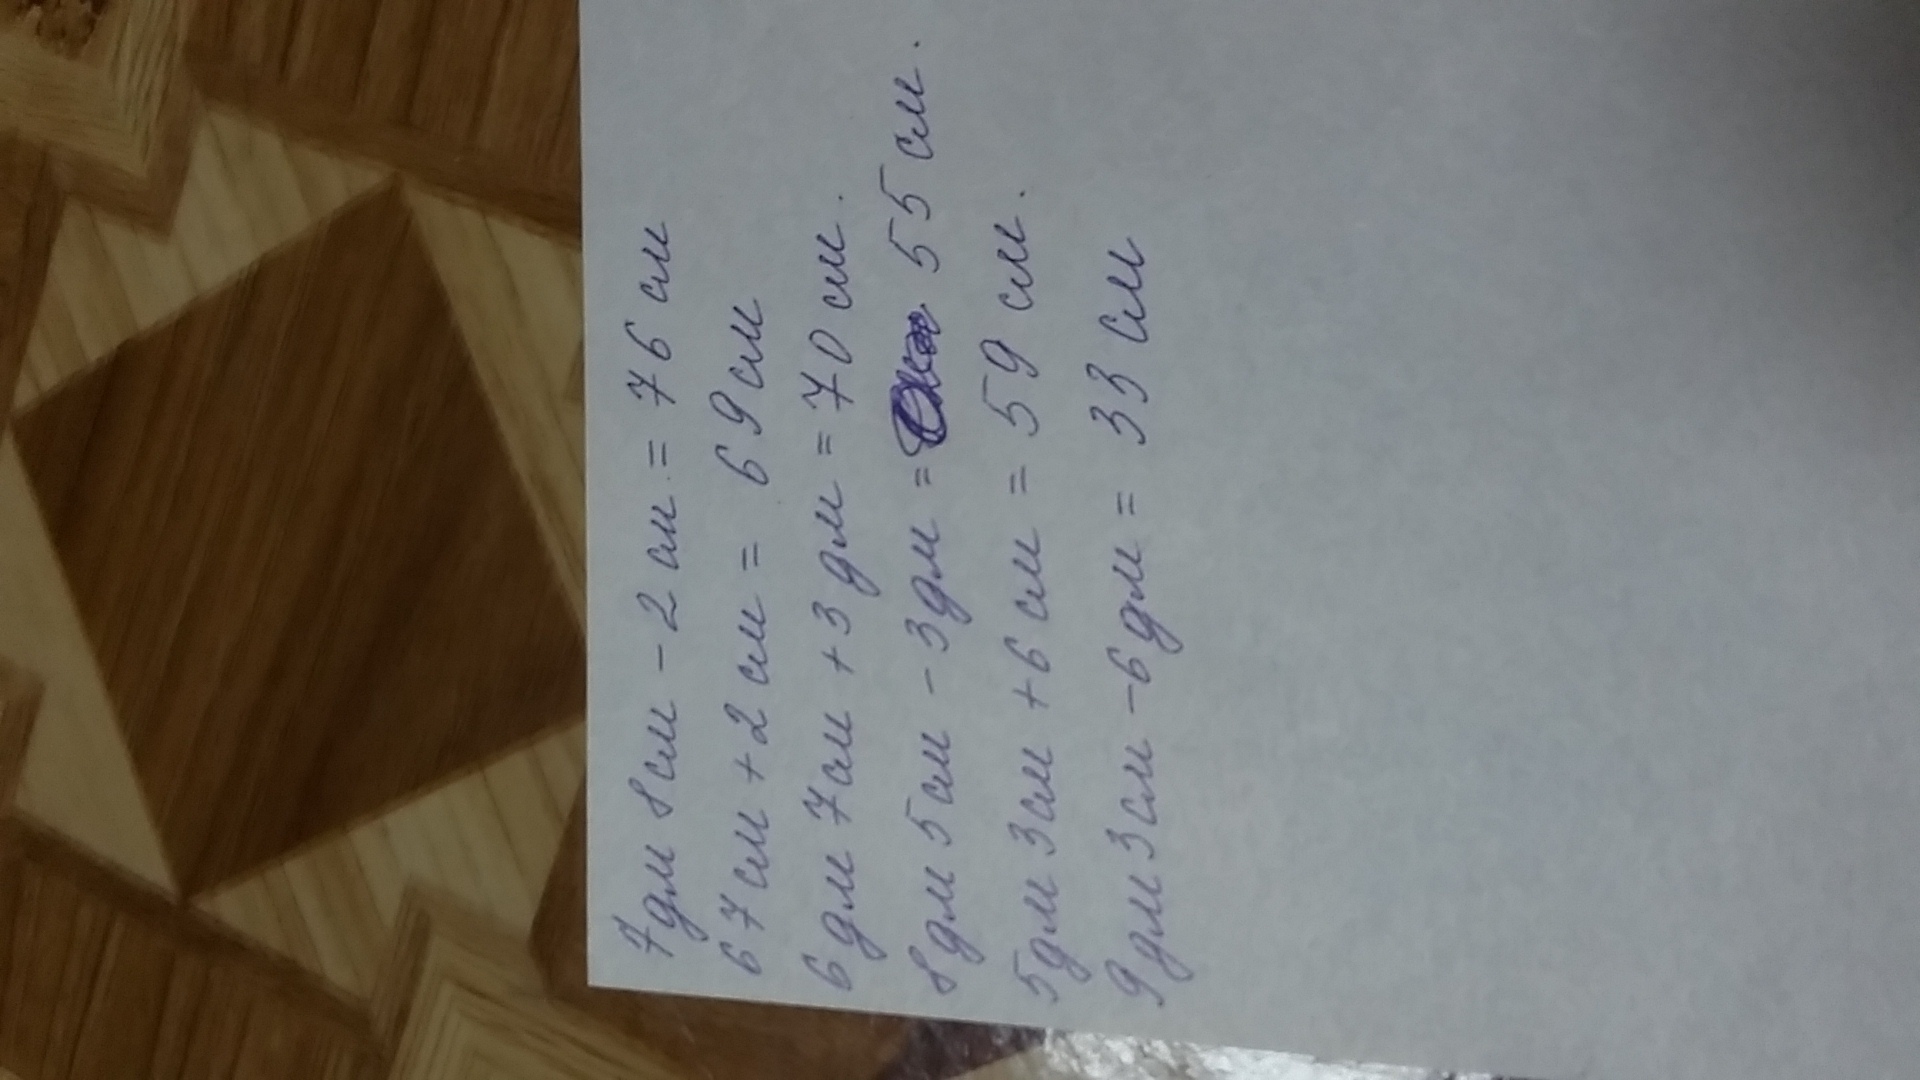 7дм 8см - 2 см = 76 см
67см + 2 см = 69см
6 дм 7см + 3 дм = 70 см.
8дм 5см - 3дм = 55 см.
5дм 3см + 6 см = 59 см.
9дм 3см - 6 дм = 33 см